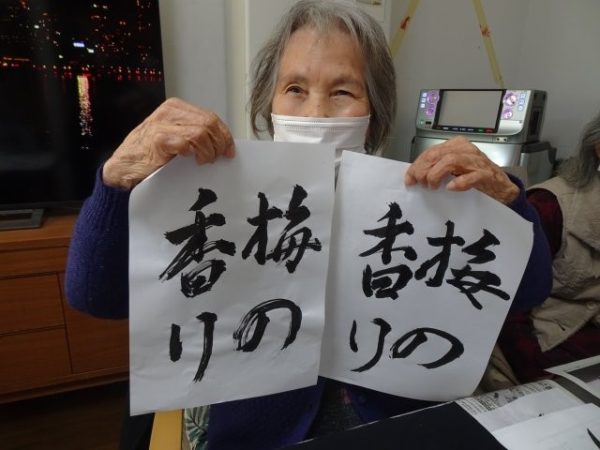 梅の
香り
梅の
香り